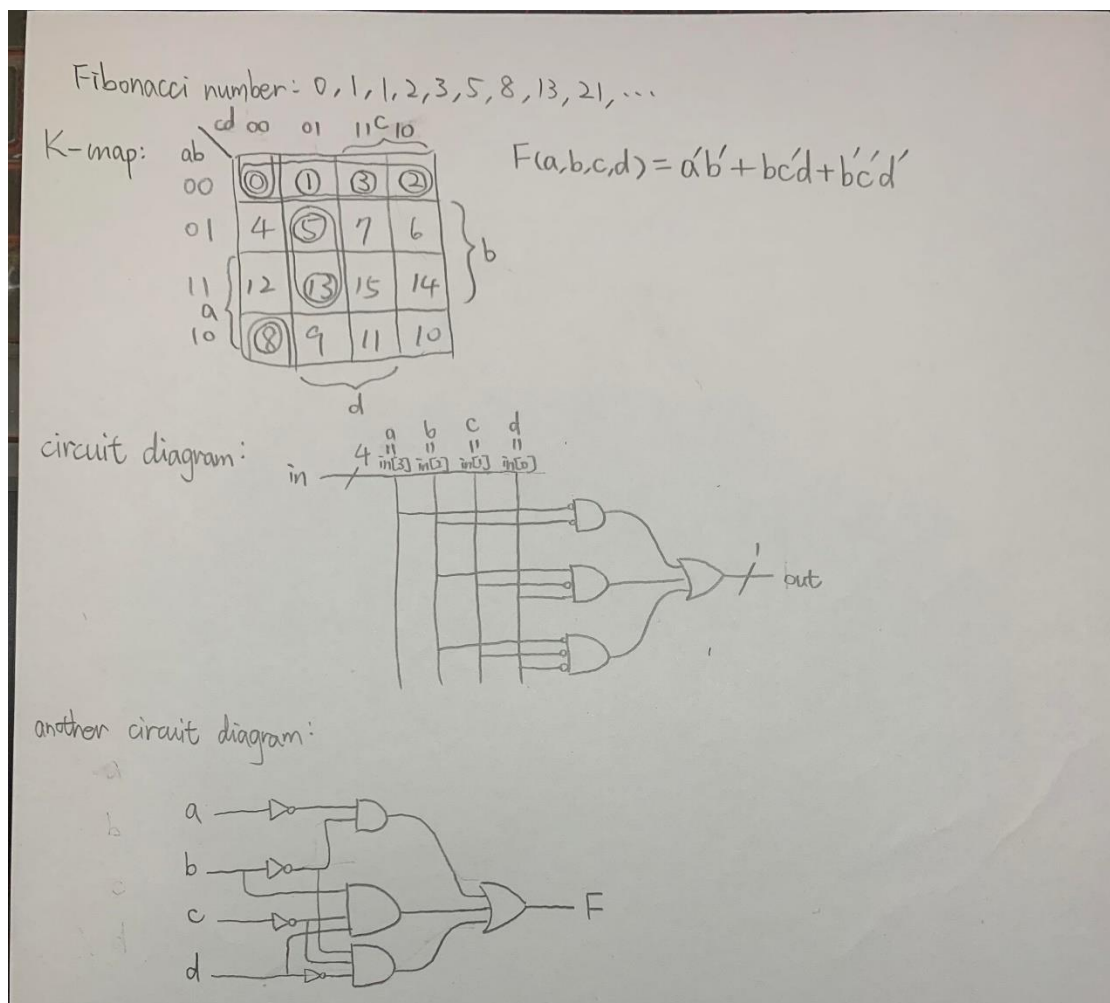 Fibonacci number: 0, 1, 1, 2, 3, 5, 8, 13, 21, ...
K-map:
cd 00 01 11 c 10
ab
00 0 1 3 2
01 4 5 7 6
b
11 12 13 15 14
a
10 8 9 11 10
d
F(a,b,c,d) = a'b' + bc'd + b'c'd'
circuit diagram:
a b c d
= = = =
in 4 in[3] in[2] in[1] in[0]
1
out
another circuit diagram:
a
b
c
d
a
b
c
d
F